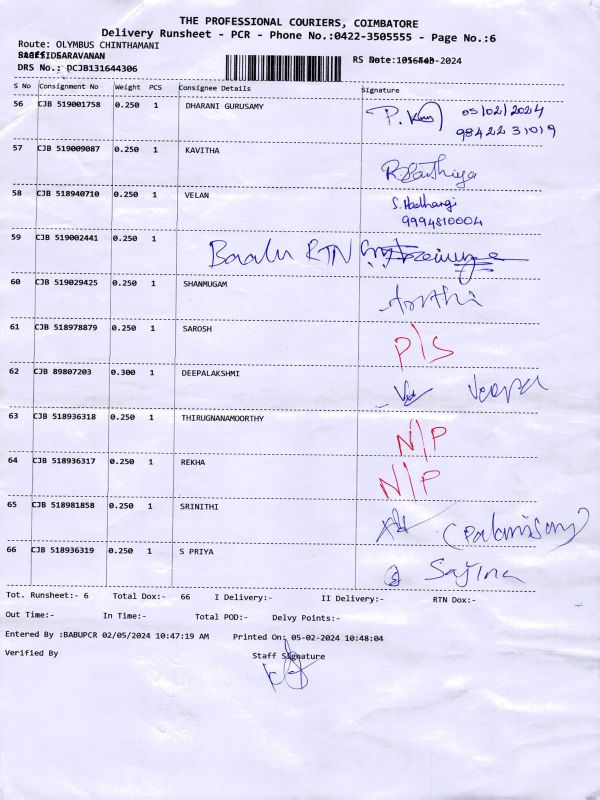 THE PROFESSIONAL COURIERS, COIMBATORE
Delivery Runsheet - PCR - Phone No.:0422-3505555 - Page No.:6
Route: OLYMBUS CHINTHAMANI
SARAVANAN
DRS No.: PCJB131644306
RS Date: -2024
S No Consignment No Weight PCS Consignee Details Signature
56 CJB 519001758 0.250 1 DHARANI GURUSAMY 05/02/2024
98422 31019
57 CJB 519009087 0.250 1 KAVITHA
58 CJB 518940710 0.250 1 VELAN
9994810004
59 CJB 519002441 0.250 1 RTN
60 CJB 519029425 0.250 1 SHANMUGAM
61 CJB 518978879 0.250 1 SAROSH P/S
62 CJB 89807203 0.300 1 DEEPALAKSHMI
63 CJB 518936318 0.250 1 THIRUGNANAMOORTHY N/P
64 CJB 518936317 0.250 1 REKHA N/P
65 CJB 518981858 0.250 1 SRINITHI
66 CJB 518936319 0.250 1 S PRIYA
Tot. Runsheet:- 6 Total Dox:- 66 I Delivery:- II Delivery:- RTN Dox:-
Out Time:- In Time:- Total POD:- Delvy Points:-
Entered By :BABUPCR 02/05/2024 10:47:19 AM Printed On: 05-02-2024 10:48:04
Verified By Staff Signature